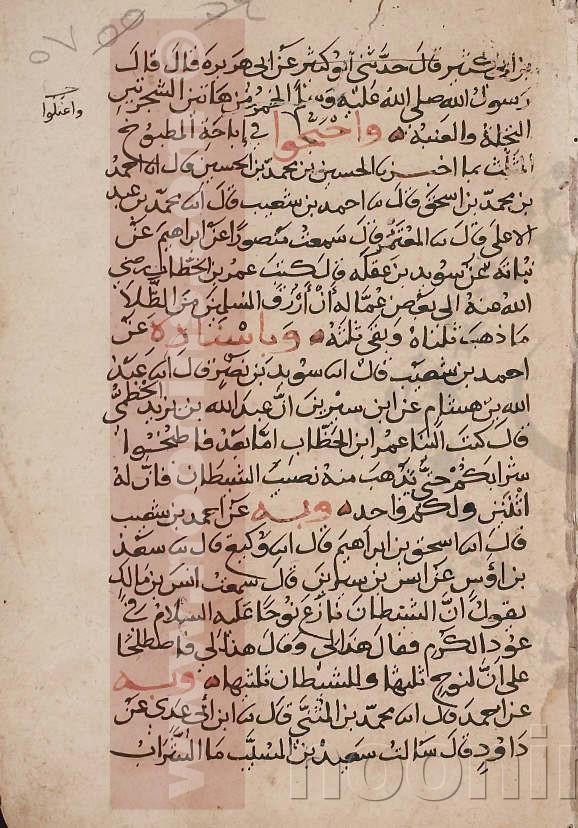 بن ابى كثير قال حدثنى ابو كثير عن ابى هريرة قال قال
رسول الله صلى الله عليه وسلم الخمر من هاتين الشجرتين
النخلة والعنبة واحتجوا فى إباحة المطبوخ
المثلث بما اخبرنا الحسين بن محمد بن الحسين قال انا احمد
بن محمد بن اسحق قال نا احمد بن شعيب قال انا محمد بن عبد
الاعلى قال نا المعتمر قال سمعت منصورا عن ابراهيم عن
نباته عن سويد بن غفلة قال كتب عمر بن الخطاب رضى
الله عنه الى بعض عماله أن أرزق المسلمين من الطلا
ما ذهب ثلثاه وبقى ثلثه وباسناده عن
احمد بن شعيب قال انا سويد بن نصر قال انا عبد
الله بن هشام عن ابن سيرين ان عبد الله بن يزيد الخطمى
قال كتب الينا عمر ابن الخطاب اما بعد فاطبخوا
شرابكم حتى يذهب منه نصيب الشيطان فان له
اثنين ولكم واحد وبه عن احمد بن شعيب
قال انا اسحق بن ابراهيم قال انا وكيع قال نا سعد
بن اوس عن انس بن سيرين قال سمعت انس بن مالك
يقول ان الشيطان نازع نوحا عليه السلام فى
عود الكرم فقال هذا لى وقال هذا لى فاصطلحا
على ان لنوح ثلثها وللشيطان ثلثيها وبه
عن احمد قال انا محمد بن المثنى قال نا ابن ابى عدى عن
داود قال سالت سعيد بن المسيب ما الشراب